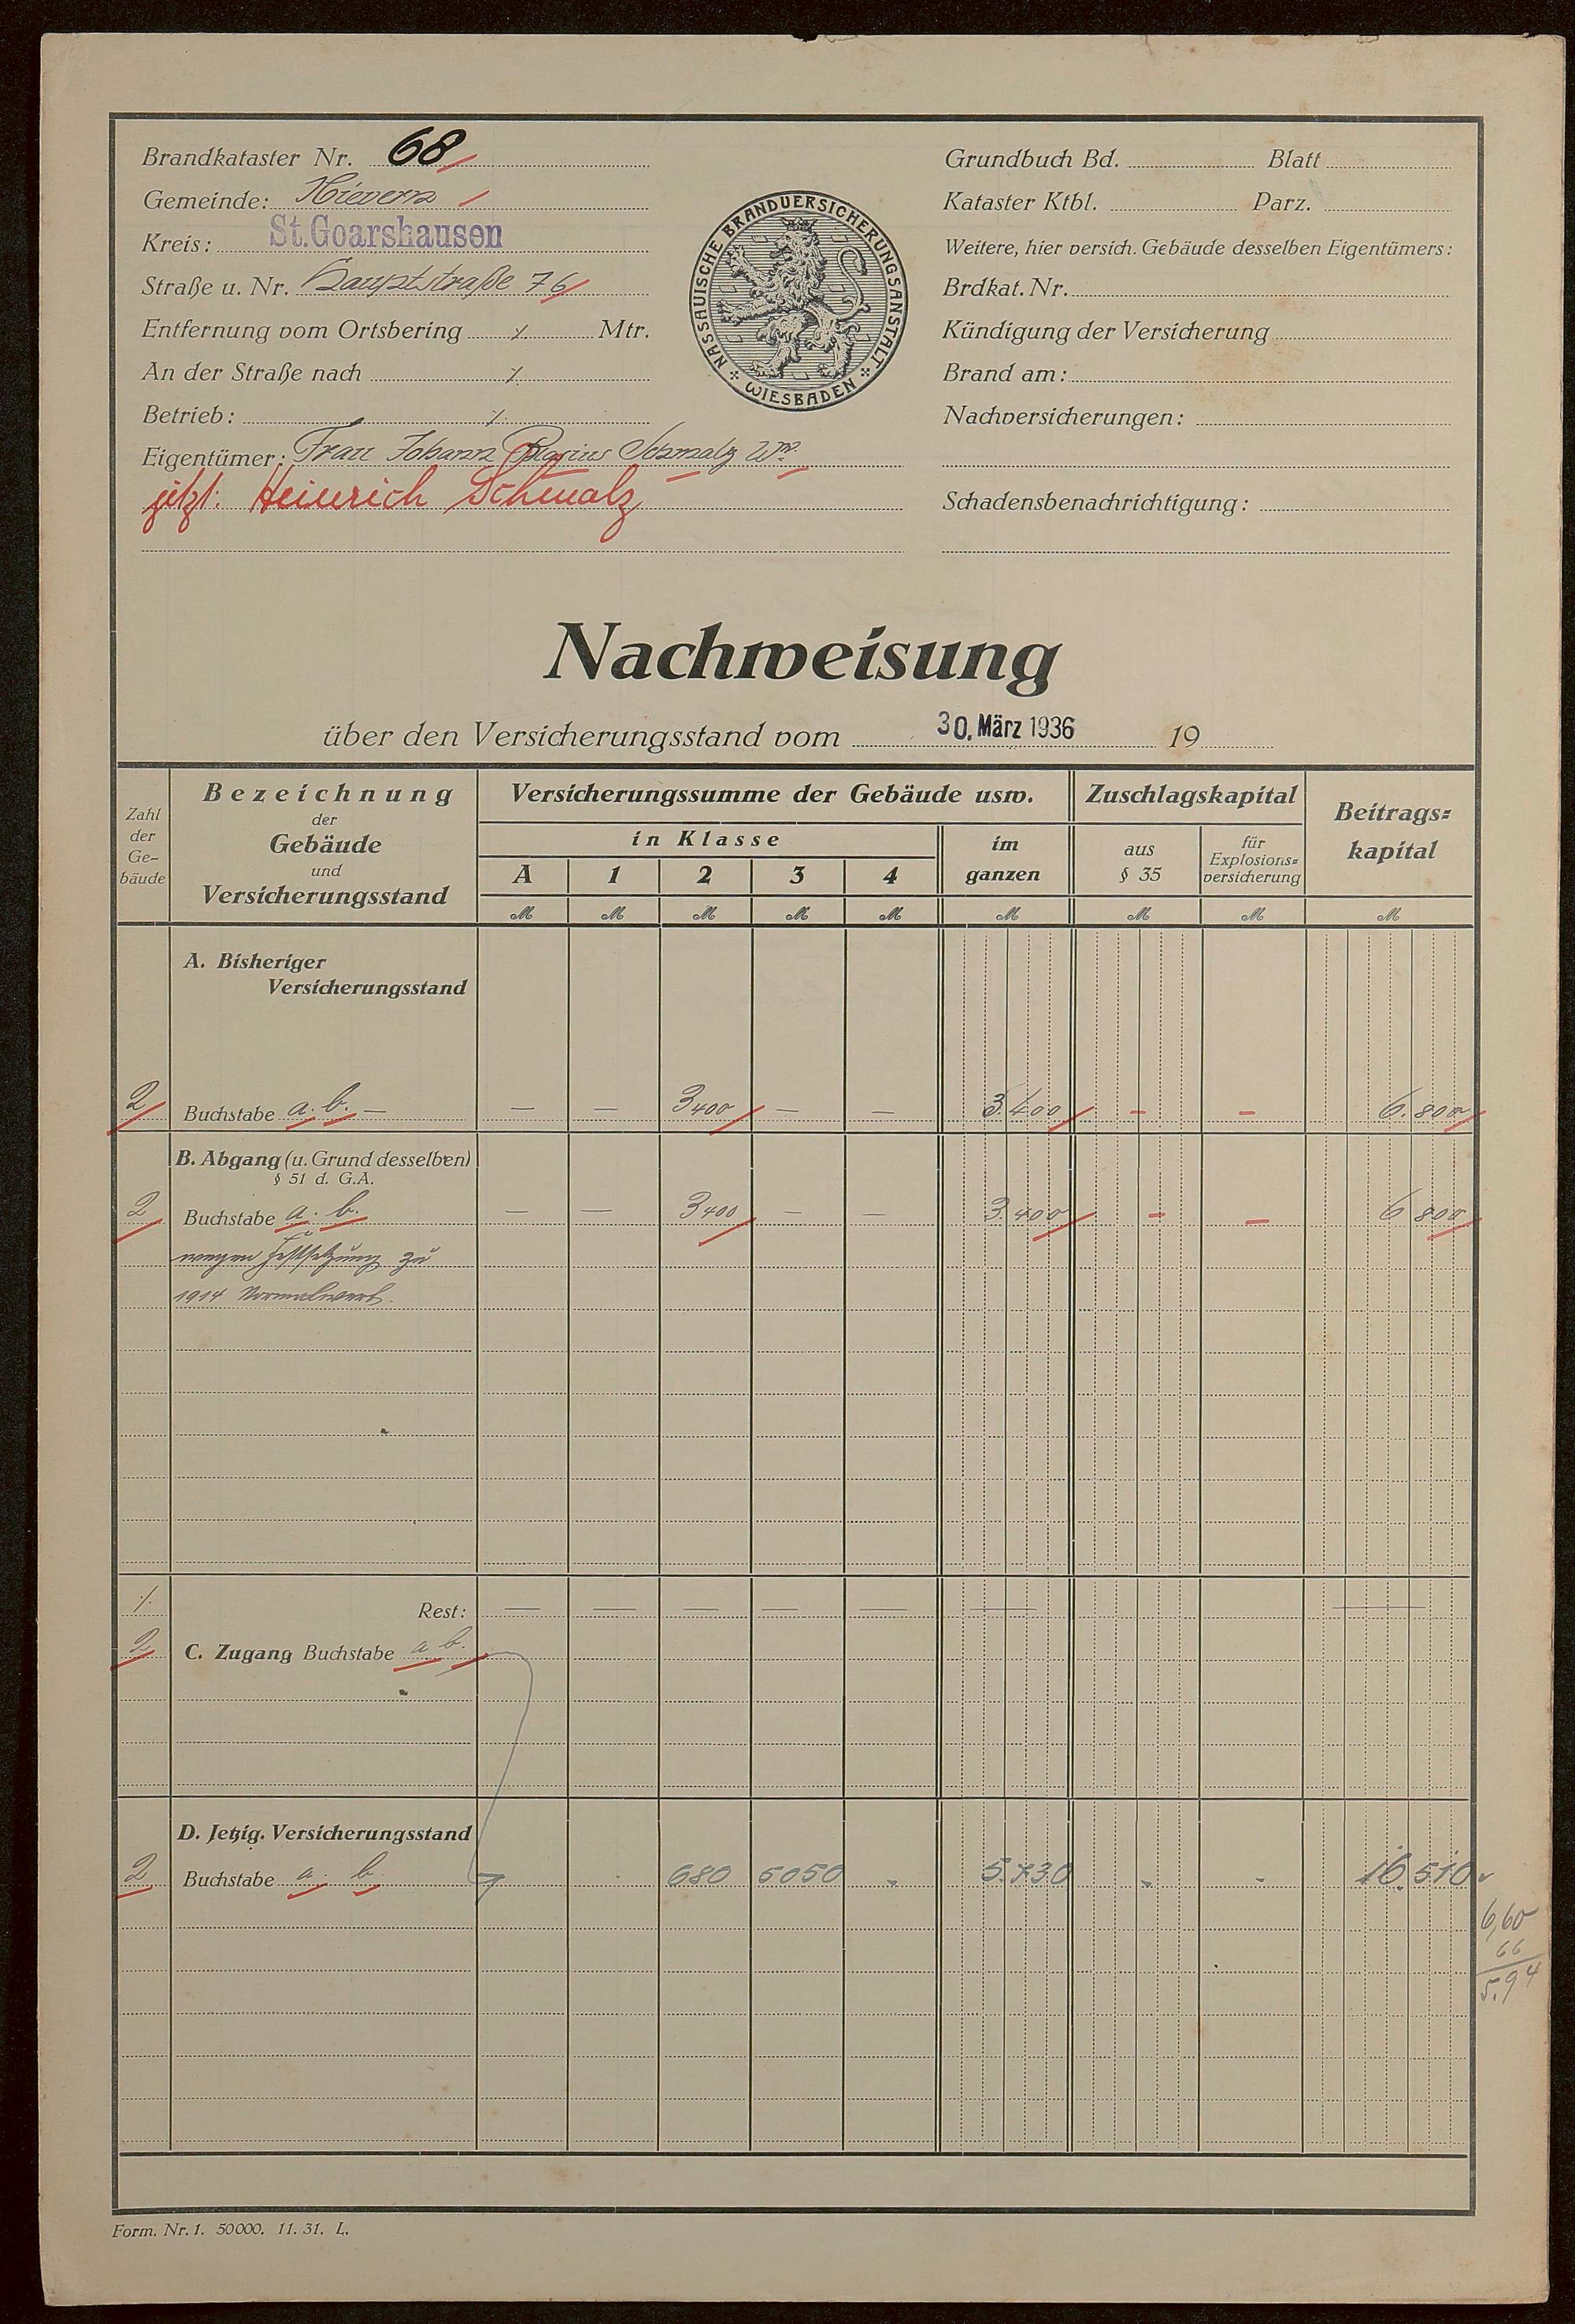 Brandkataster Nr. 68
Gemeinde: Nievern
Kreis: St. Goarshausen
Straße u. Nr. Hauptstraße 76
Entfernung vom Ortsbering ./. Mtr.
An der Straße nach ./.
Betrieb: ./.
Eigentümer: Frau Johann Schmalz Ww.
jetzt: Heinrich Schmalz
NASSAUISCHE BRANDVERSICHERUNGSANSTALT
WIESBADEN
Grundbuch Bd. Blatt
Kataster Ktbl. Parz.
Weitere, hier versich. Gebäude desselben Eigentümers:
Brdkat. Nr.
Kündigung der Versicherung
Brand am:
Nachversicherungen:
Schadensbenachrichtigung:
Nachweisung
über den Versicherungsstand vom 30. März 1936 19
Zahl der Ge-bäude
Bezeichnung der Gebäude und Versicherungsstand
Versicherungssumme der Gebäude usw.
in Klasse
A 1 2 3 4
im ganzen
Zuschlagskapital
aus § 35
für Explosions=versicherung
Beitrags=kapital
M M M M M M M M M
A. Bisheriger
Versicherungsstand
2 Buchstabe a. b. — — — 3400 — — 3.400 — — 6.800
B. Abgang (u. Grund desselben)
§ 51 d. G.A.
2 Buchstabe a. b. — — 3400 — — 3.400 — — 6 800
wegen Festsetzung zu
1914 Normalwert.
./. Rest: — — — — — — —
2 C. Zugang Buchstabe a b.
D. Jetzig. Versicherungsstand
2 Buchstabe a. b. 680 5050 - 5.730 - - 16.510
6,60
66
5.94
Form. Nr. 1. 50000. 11. 31. L.